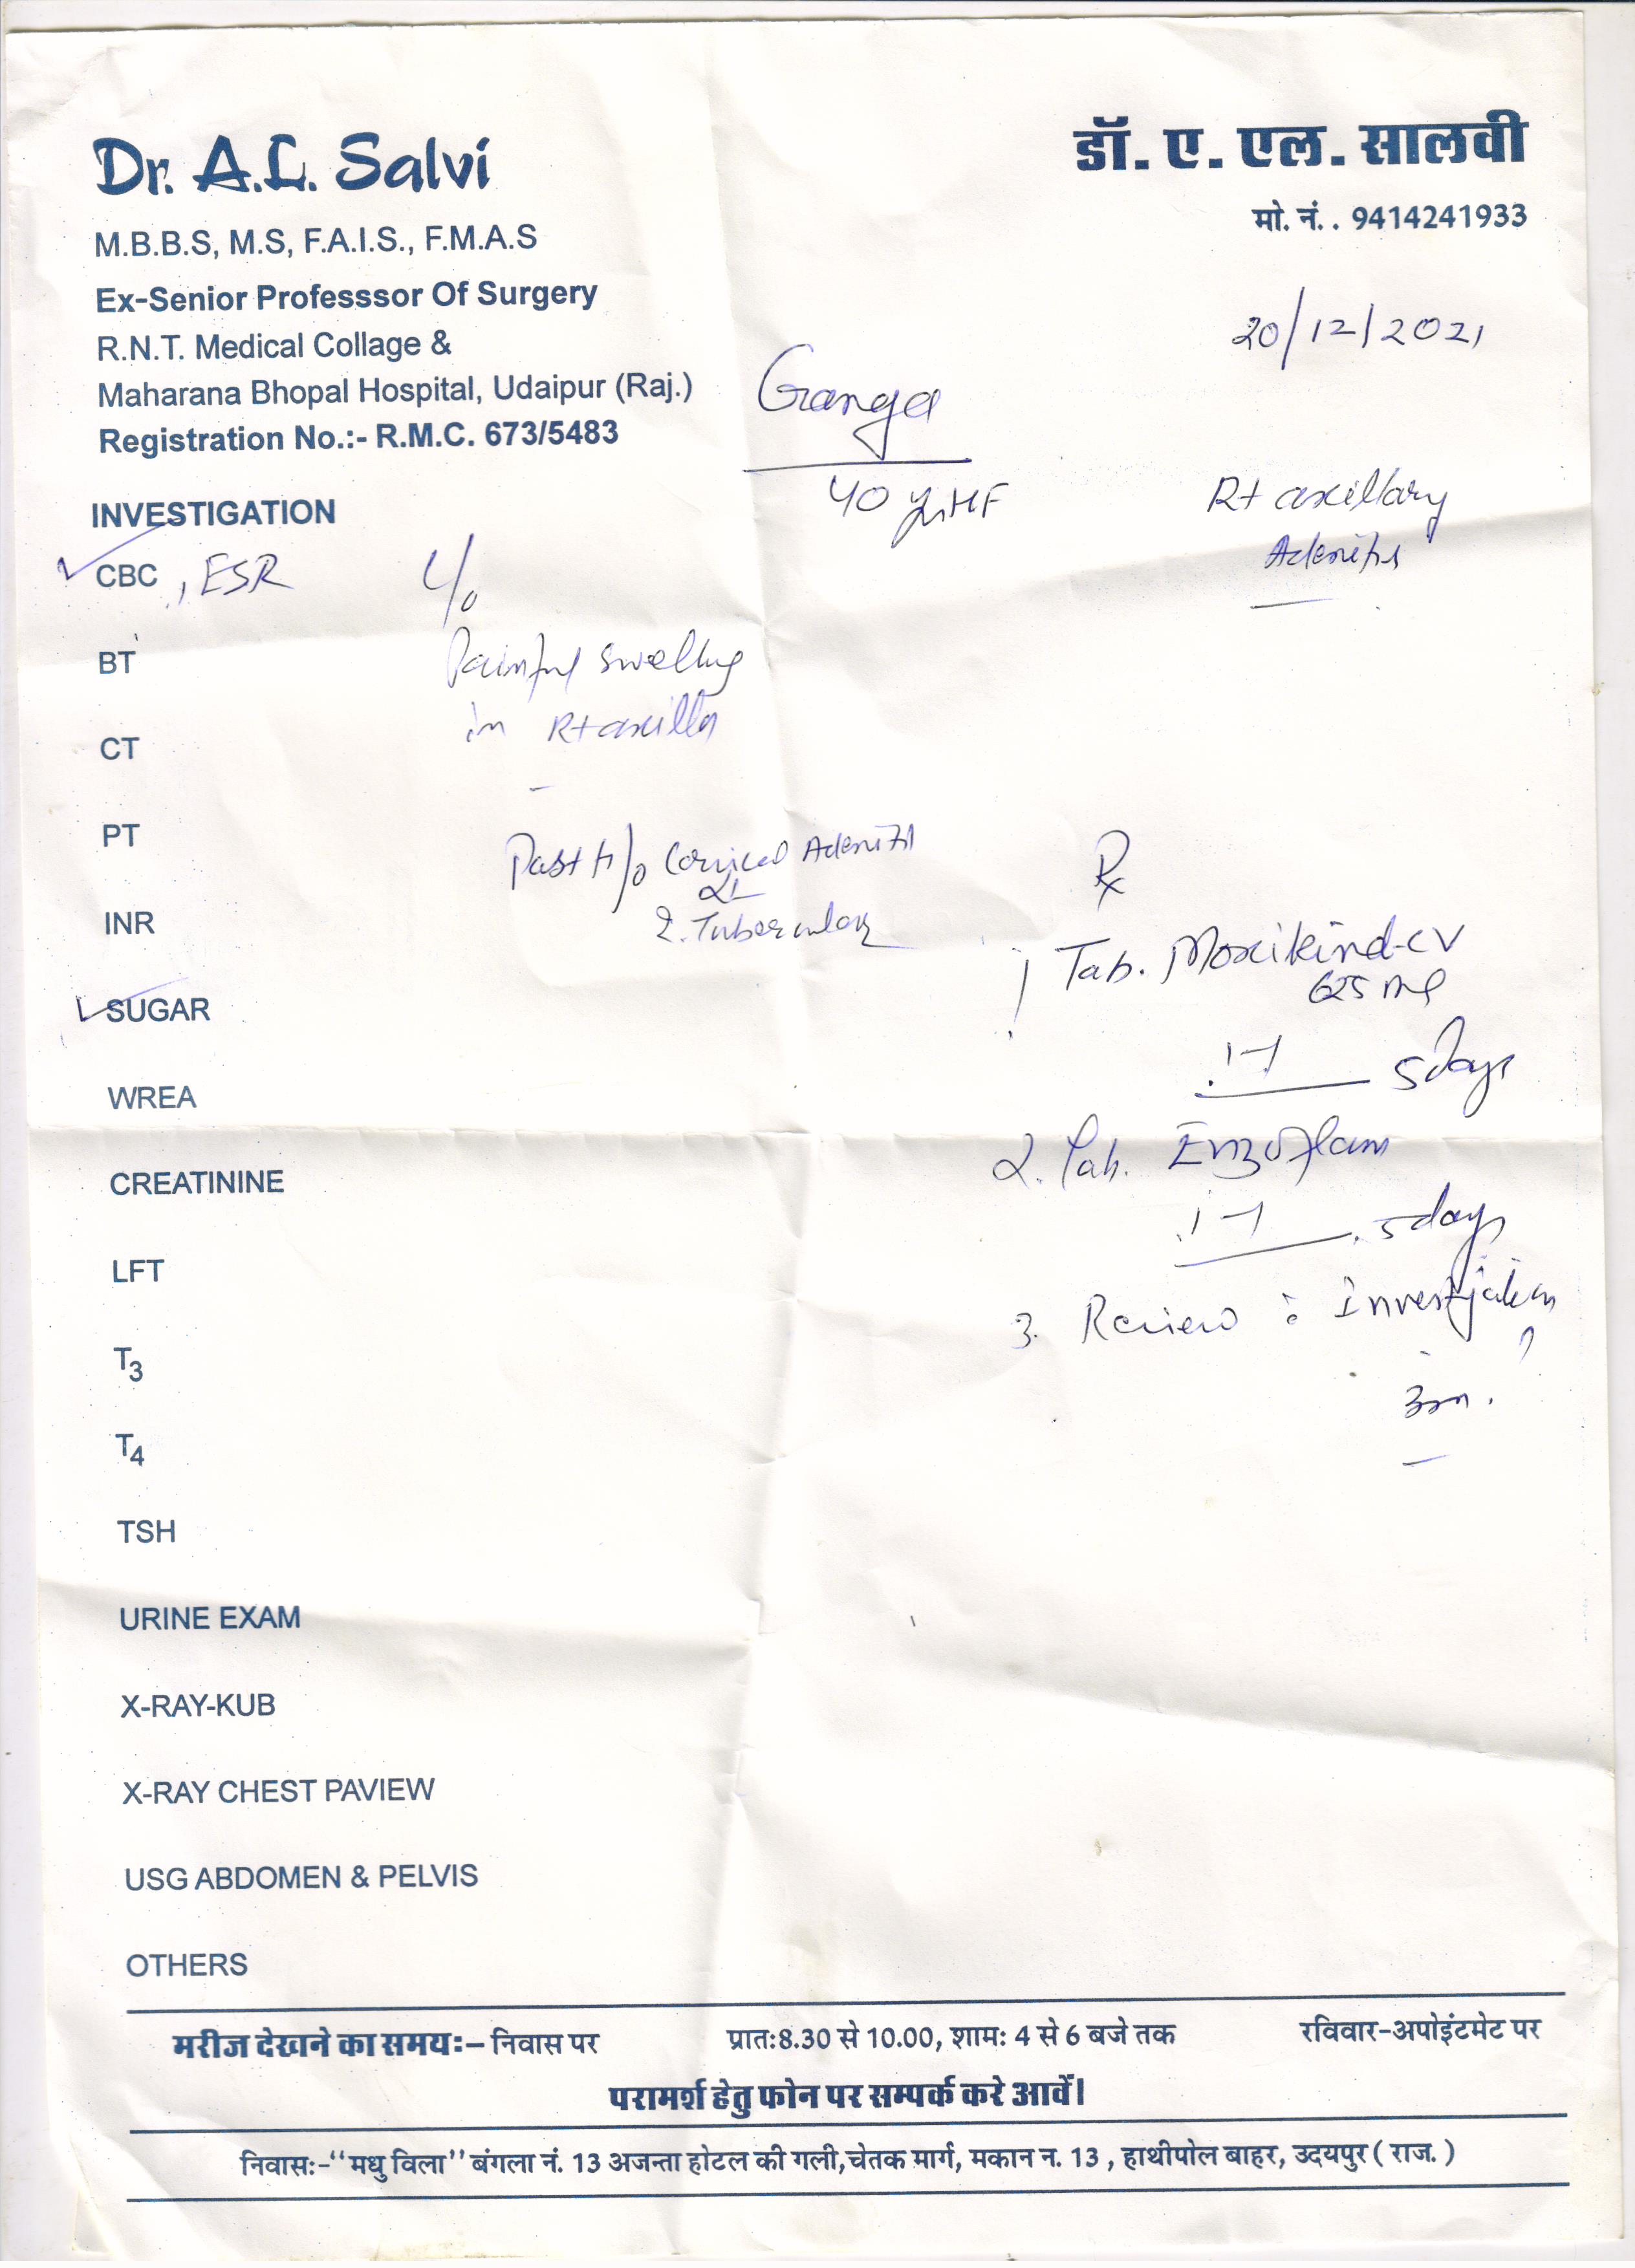 Dr. A.L. Salvi
M.B.B.S, M.S, F.A.I.S., F.M.A.S
Ex-Senior Professsor Of Surgery
R.N.T. Medical Collage &
Maharana Bhopal Hospital, Udaipur (Raj.)
Registration No.:- R.M.C. 673/5483
डॉ. ए. एल. सालवी
मो. नं. . 9414241933
20/12/2021
Ganga
40 yr HF
Rt axillary
Adenitis
INVESTIGATION
CBC , ESR
C/o
Painful swelling
in Rt axilla
BT
CT
PT
Past H/o Cervical Adenitis
Tubercular
INR
SUGAR
WREA
CREATININE
LFT
T3
T4
TSH
URINE EXAM
X-RAY-KUB
X-RAY CHEST PAVIEW
USG ABDOMEN & PELVIS
OTHERS
Rx
1 Tab. Moxikind-CV
625 mg
1-1 5 days
2. Tab. Enzoflam
1-1 5 days
3. Review : Investigation
मरीज देखने का समयः– निवास पर प्रातः8.30 से 10.00, शामः 4 से 6 बजे तक रविवार-अपोइंटमेट पर
परामर्श हेतु फोन पर सम्पर्क करे आवें।
निवासः-‘‘मधु विला’’ बंगला नं. 13 अजन्ता होटल की गली,चेतक मार्ग, मकान न. 13 , हाथीपोल बाहर, उदयपुर ( राज. )